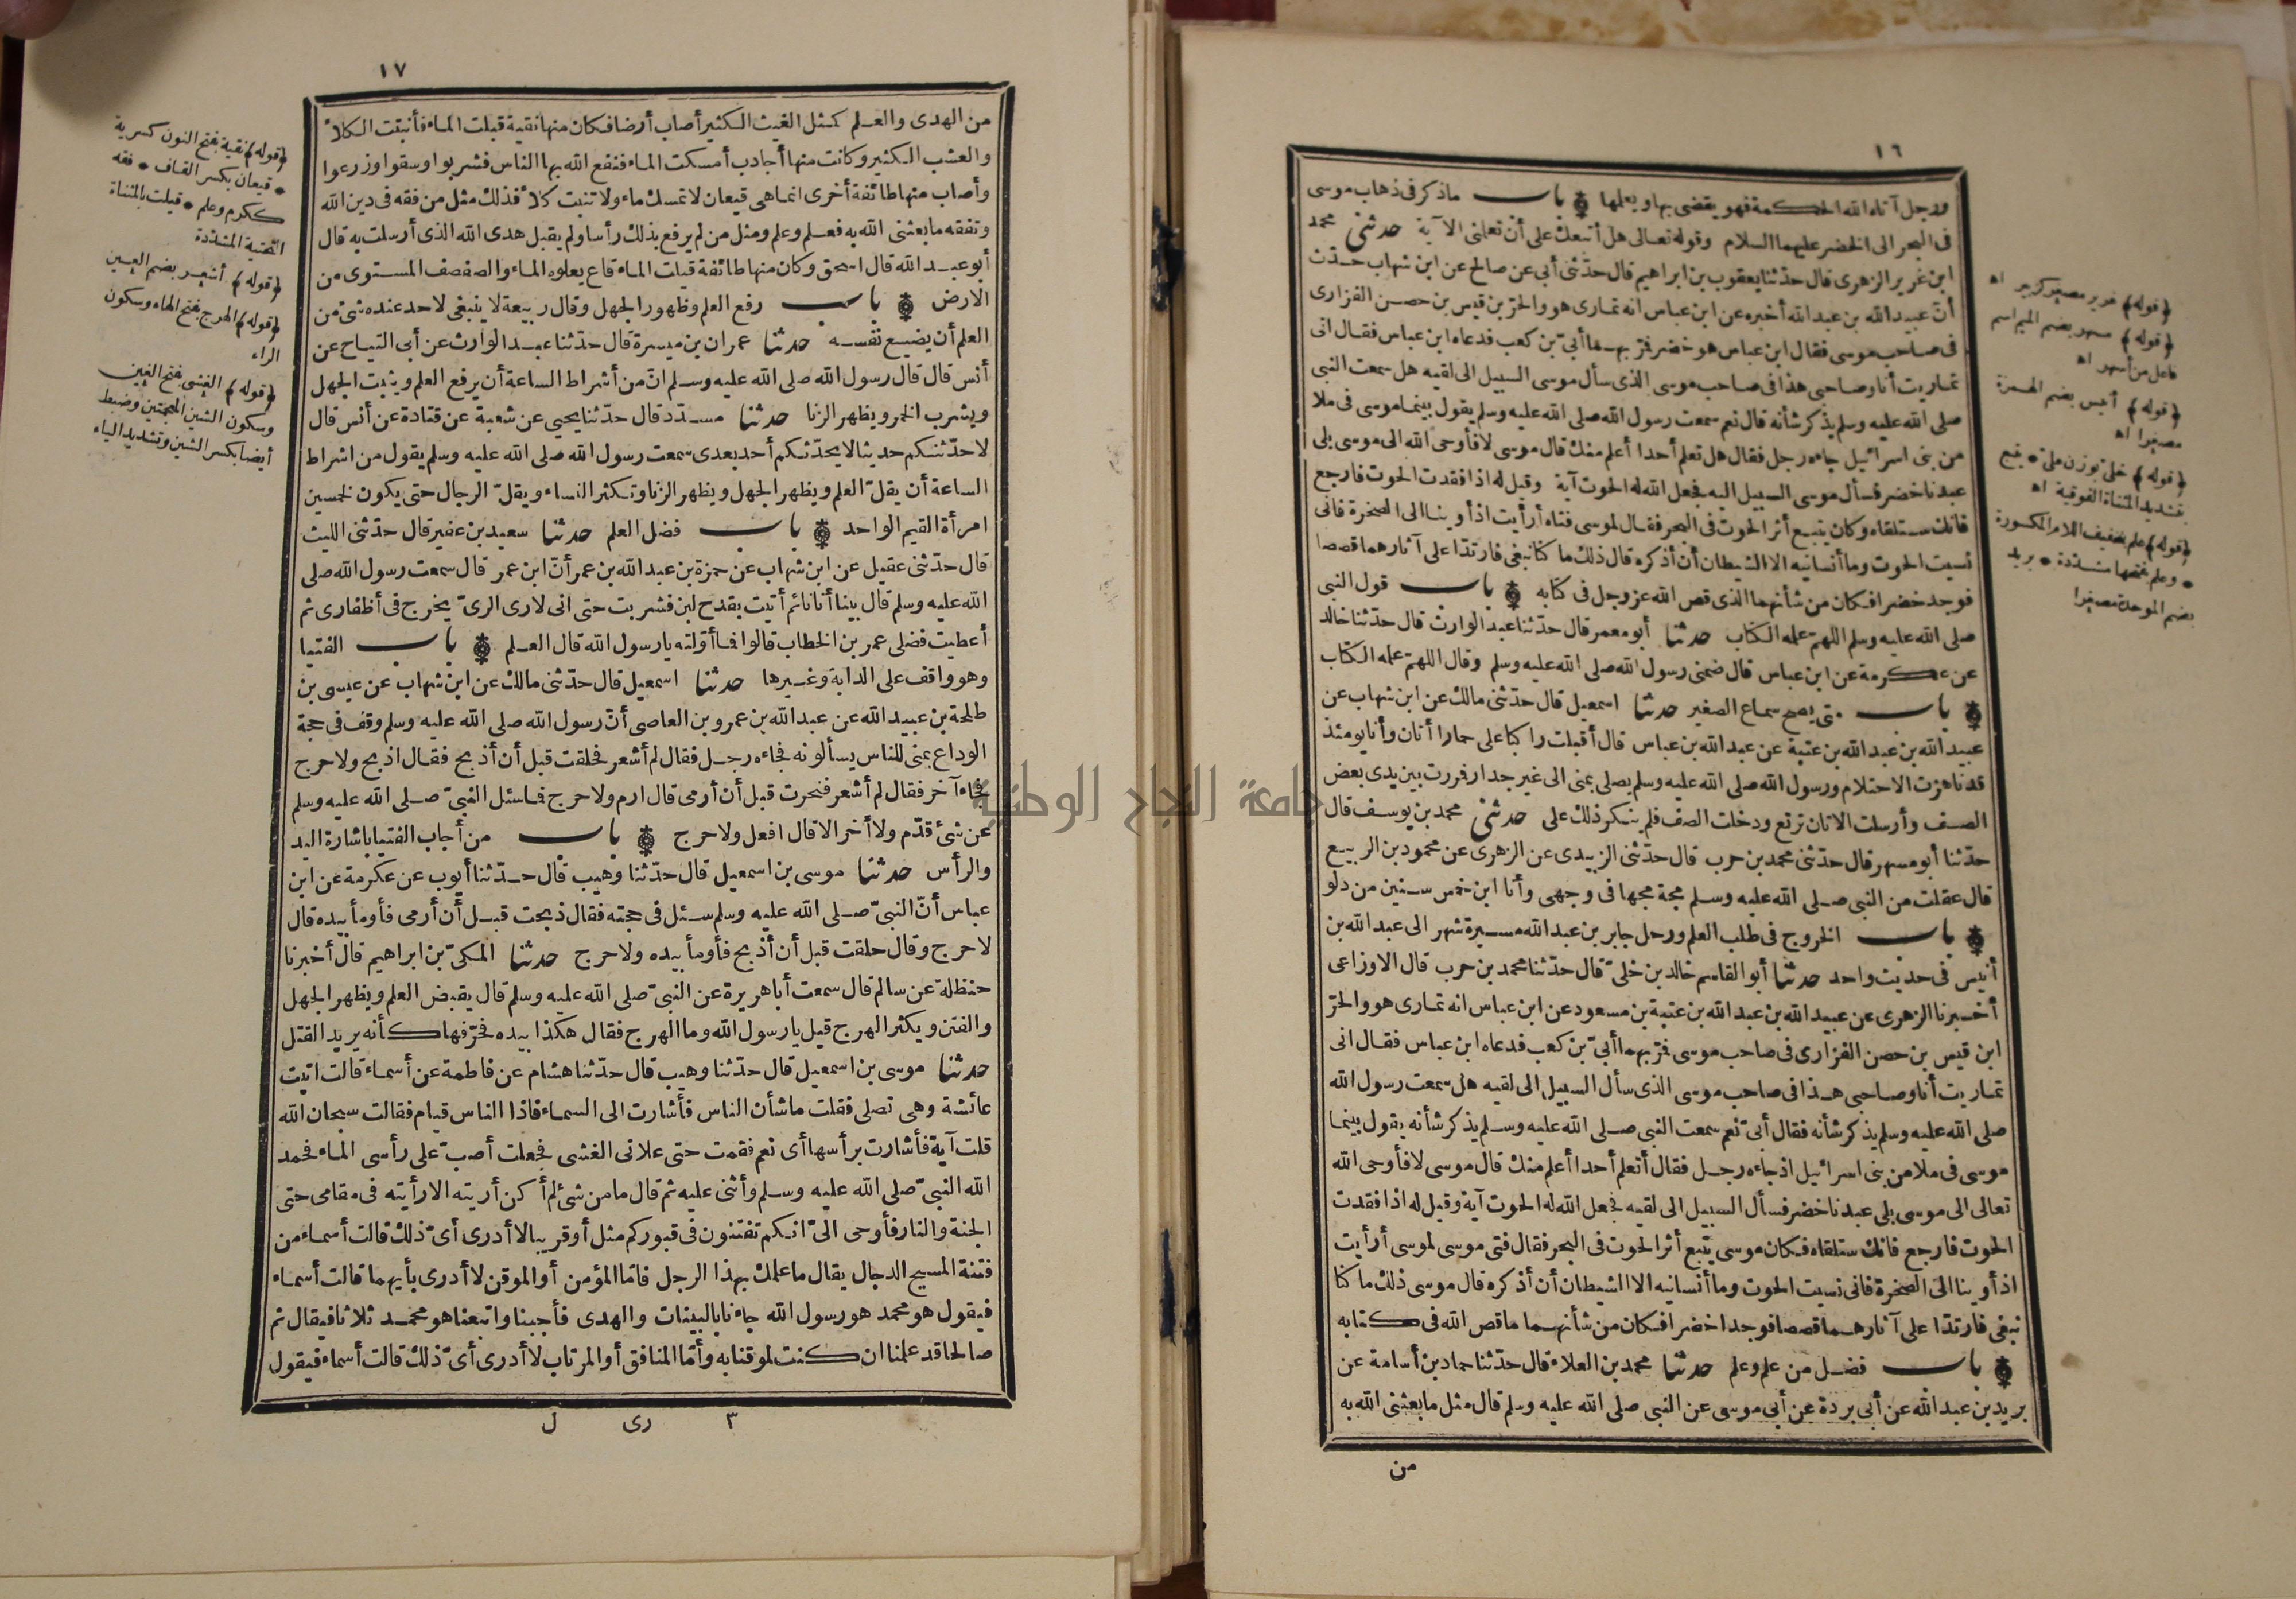 ١٦
ورجل آتاه الله الحكمة فهو يقضى بها ويعلمها باب ماذكر فى ذهاب موسى
فى البحر الى الخضر عليهما السلام وقوله تعالى هل أتبعك على أن تعلمنى الآية حدثنى محمد
ابن غرير الزهرى قال حدّثنا يعقوب بن ابراهيم قال حدّثنى أبى عن صالح عن ابن شهاب حدّث
أنّ عبيد الله بن عبد الله أخبره عن ابن عباس انه تمارى هو والحرّ بن قيس بن حصن الفزارى
فى صاحب موسى فقال ابن عباس هو خضر فمرّ بهما أبىّ بن كعب فدعاه ابن عباس فقال انى
تماريت أنا وصاحبى هذا فى صاحب موسى الذى سأل موسى السبيل الى لقيه هل سمعت النبى
صلى الله عليه وسلم يذكر شأنه قال نعم سمعت رسول الله صلى الله عليه وسلم يقول بينما موسى فى ملا
من بنى اسرائيل جاءه رجل فقال هل تعلم أحدا أعلم منك قال موسى لا فأوحى الله الى موسى بلى
عبدنا خضر فسأل موسى السبيل اليه فجعل الله له الحوت آية وقيل له اذا فقدت الحوت فارجع
فانك ستلقاه وكان يتبع أثر الحوت فى البحر فقال لموسى فتاه أرأيت اذ أوينا الى الصخرة فانى
نسيت الحوت وما أنسانيه الا الشيطان أن أذكره قال ذلك ما كنا نبغى فارتدّا على آثارهما قصصا
فوجد خضرا فكان من شأنهما الذى قص الله عز وجل فى كتابه باب قول النبى
صلى الله عليه وسلم اللهمّ علمه الكتاب حدثنا أبو معمر قال حدّثنا عبد الوارث قال حدّثنا خالد
عن عكرمة عن ابن عباس قال ضمنى رسول الله صلى الله عليه وسلم وقال اللهمّ علمه الكتاب
باب متى يصح سماع الصغير حدثنا اسمعيل قال حدّثنى مالك عن ابن شهاب عن
عبيد الله بن عبد الله بن عتبة عن عبد الله بن عباس قال أقبلت راكبا على حمار أتان وأنا يومئذ
قد ناهزت الاحتلام ورسول الله صلى الله عليه وسلم يصلى بمنى الى غير جدار فمررت بين يدى بعض
الصف وأرسلت الاتان ترتع ودخلت الصف فلم ينكر ذلك على حدثنى محمد بن يوسف قال
حدّثنا أبو مسهر قال حدّثنى محمد بن حرب قال حدّثنى الزبيدى عن الزهرى عن محمود بن الربيع
قال عقلت من النبى صلى الله عليه وسلم مجة مجها فى وجهى وأنا ابن خمس سنين من دلو
باب الخروج فى طلب العلم ورحل جابر بن عبد الله مسيرة شهر الى عبد الله بن
أنيس فى حديث واحد حدثنا أبو القاسم خالد بن خلىّ قال حدّثنا محمد بن حرب قال الاوزاعى
أخبرنا الزهرى عن عبيد الله بن عبد الله بن عتبة بن مسعود عن ابن عباس انه تمارى هو والحرّ
ابن قيس بن حصن الفزارى فى صاحب موسى فمرّ بهما أبىّ بن كعب فدعاه ابن عباس فقال انى
تماريت أنا وصاحبى هذا فى صاحب موسى الذى سأل السبيل الى لقيه هل سمعت رسول الله
صلى الله عليه وسلم يذكر شأنه فقال أبىّ نعم سمعت النبى صلى الله عليه وسلم يذكر شأنه يقول بينما
موسى فى ملا من بنى اسرائيل اذ جاءه رجل فقال أتعلم أحدا أعلم منك قال موسى لا فأوحى الله
تعالى الى موسى بلى عبدنا خضر فسأل السبيل الى لقيه فجعل الله له الحوت آية وقيل له اذا فقدت
الحوت فارجع فانك ستلقاه فكان موسى يتبع أثر الحوت فى البحر فقال فتى موسى لموسى أرأيت
اذ أوينا الى الصخرة فانى نسيت الحوت وما أنسانيه الا الشيطان أن أذكره قال موسى ذلك ما كنا
نبغى فارتدّا على آثارهما قصصا فوجدا خضرا فكان من شأنهما ما قص الله فى كتابه
باب فضل من علم وعلم حدثنا محمد بن العلاء قال حدّثنا حماد بن أسامة عن
بريد بن عبد الله عن أبى بردة عن أبى موسى عن النبى صلى الله عليه وسلم قال مثل ما بعثنى الله به
من
﴿قوله﴾ غرير مصغر كزبير اه
﴿قوله﴾ مسهر بضم الميم اسم
فاعل من أسهر اه
﴿قوله﴾ أنيس بضم الهمزة
مصغرا اه
﴿قوله﴾ خلى بوزن على • يتبع
بتشديد المثناة الفوقية اه
﴿قوله﴾ علم بتخفيف اللام المكسورة
• وعلم بفتحها مشددة • بريد
بضم الموحدة مصغرا
١٧
من الهدى والعلم كمثل الغيث الكثير أصاب أرضا فكان منها نقية قبلت الماء فأنبتت الكلأ
والعشب الكثير وكانت منها أجادب أمسكت الماء فنفع الله بها الناس فشربوا وسقوا وزرعوا
وأصاب منها طائفة أخرى انما هى قيعان لا تمسك ماء ولا تنبت كلأ فذلك مثل من فقه فى دين الله
وتفقه ما بعثنى الله به فعلم وعلم ومثل من لم يرفع بذلك رأسا ولم يقبل هدى الله الذى أرسلت به قال
أبو عبد الله قال اسحق وكان منها طائفة قيلت الماء قاع يعلوه الماء والصفصف المستوى من
الارض باب رفع العلم وظهور الجهل وقال ربيعة لا ينبغى لاحد عنده شئ من
العلم أن يضيع نفسه حدثنا عمران بن ميسرة قال حدّثنا عبد الوارث عن أبى التياح عن
أنس قال قال رسول الله صلى الله عليه وسلم انّ من أشراط الساعة أن يرفع العلم ويثبت الجهل
ويشرب الخمر ويظهر الزنا حدثنا مسدّد قال حدّثنا يحيى عن شعبة عن قتادة عن أنس قال
لاحدّثنكم حديثا لا يحدّثكم أحد بعدى سمعت رسول الله صلى الله عليه وسلم يقول من اشراط
الساعة أن يقلّ العلم ويظهر الجهل ويظهر الزنا وتكثر النساء ويقلّ الرجال حتى يكون لخمسين
امرأة القيم الواحد باب فضل العلم حدثنا سعيد بن عفير قال حدّثنى الليث
قال حدّثنى عقيل عن ابن شهاب عن حمزة بن عبد الله بن عمر أنّ ابن عمر قال سمعت رسول الله صلى
الله عليه وسلم قال بينا أنا نائم أتيت بقدح لبن فشربت حتى انى لارى الرىّ يخرج فى أظفارى ثم
أعطيت فضلى عمر بن الخطاب قالوا فما أوّلته يا رسول الله قال العلم باب الفتيا
وهو واقف على الدابة وغيرها حدثنا اسمعيل قال حدّثنى مالك عن ابن شهاب عن عيسى بن
طلحة بن عبيد الله عن عبد الله بن عمرو بن العاصى أنّ رسول الله صلى الله عليه وسلم وقف فى حجة
الوداع بمنى للناس يسألونه فجاءه رجل فقال لم أشعر فحلقت قبل أن أذبح فقال اذبح ولا حرج
فجاء آخر فقال لم أشعر فنحرت قبل أن أرمى قال ارم ولا حرج فما سئل النبىّ صلى الله عليه وسلم
عن شئ قدّم ولا أخر الا قال افعل ولا حرج باب من أجاب الفتيا باشارة اليد
والرأس حدثنا موسى بن اسمعيل قال حدّثنا وهيب قال حدّثنا أيوب عن عكرمة عن ابن
عباس أنّ النبىّ صلى الله عليه وسلم سئل فى حجته فقال ذبحت قبل أن أرمى فأومأ بيده قال
لا حرج وقال حلقت قبل أن أذبح فأومأ بيده ولا حرج حدثنا المكىّ بن ابراهيم قال أخبرنا
حنظلة عن سالم قال سمعت أبا هريرة عن النبىّ صلى الله عليه وسلم قال يقبض العلم ويظهر الجهل
والفتن ويكثر الهرج قيل يا رسول الله وما الهرج فقال هكذا بيده فحرّفها كأنه يريد القتل
حدثنا موسى بن اسمعيل قال حدّثنا وهيب قال حدّثنا هشام عن فاطمة عن أسماء قالت اتيت
عائشة وهى تصلى فقلت ما شأن الناس فأشارت الى السماء فاذا الناس قيام فقالت سبحان الله
قلت آية فأشارت برأسها أى نعم فقمت حتى علانى الغشى فجعلت أصبّ على رأسى الماء فحمد
الله النبىّ صلى الله عليه وسلم وأثنى عليه ثم قال ما من شئ لم أكن أريته الا رأيته فى مقامى حتى
الجنة والنار فأوحى الىّ انكم تفتنون فى قبوركم مثل أو قريبا لا أدرى أىّ ذلك قالت أسماء من
فتنة المسيح الدجال يقال ما علمك بهذا الرجل فامّا المؤمن أو الموقن لا أدرى بأيهما قالت أسماء
فيقول هو محمد هو رسول الله جاءنا بالبينات والهدى فأجبنا واتبعنا هو محمد ثلاثا فيقال نم
صالحا قد علمنا ان كنت لموقنا به وأمّا المنافق أو المرتاب لا أدرى أىّ ذلك قالت أسماء فيقول
٣ رى ل
﴿قوله﴾ نقية بفتح النون كسرية
• قيعان بكسر القاف • فقه
ككرم وعلم • قيلت بالمثناة
التحتية المشدّدة
﴿قوله﴾ أشعر بضم العين
﴿قوله﴾ الهرج بفتح الهاء وسكون
الراء
﴿قوله﴾ الغشى بفتح الغين
وسكون الشين المعجمتين وضبط
أيضا بكسر الشين وتشديد الياء
جامعة النجاح الوطنية